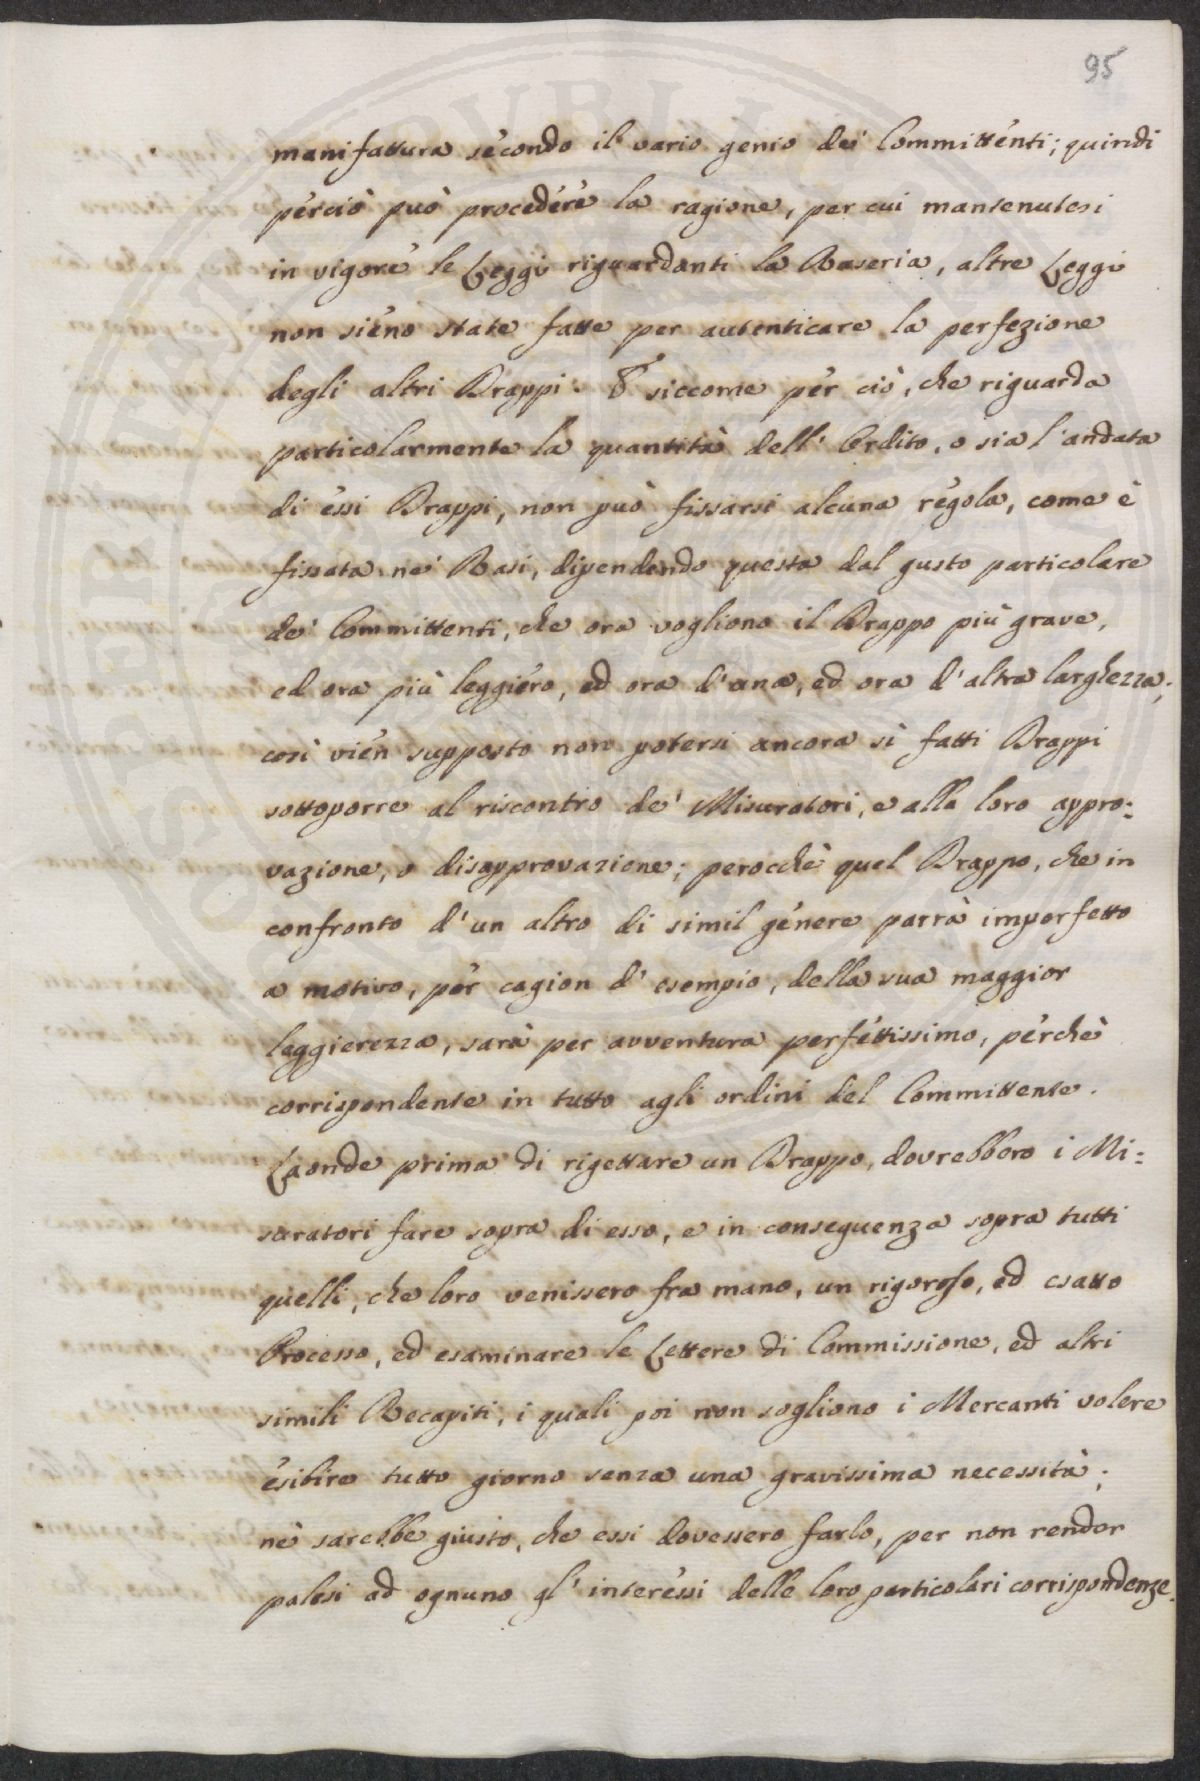 95
manifattura secondo il vario genio dei Committenti; quindi
perciò può procedere la ragione, per cui mantenutesi
in vigore le Leggi riguardanti la Raseria, altre Leggi
non sieno state fatte per autenticare la perfezione
degli altri Drappi. E siccome per ciò, che riguarda
particolarmente la quantità dell' Ordito, o sia l'andata
di essi Drappi, non può fissarsi alcuna regola, come è
fissata ne' Rasi, dipendendo questa dal gusto particolare
de' Committenti, che ora vogliono il Drappo più grave,
ed ora più leggiero, ed ora d'una, ed ora d'altra larghezza;
così vien supposto non potersi ancora sì fatti Drappi
sottoporre al riscontro de' Misuratori, e alla loro appro:
vazione, o disapprovazione; perocchè quel Drappo, che in
confronto d'un altro di simil genere parrà imperfetto
a motivo, per cagion d'esempio, della sua maggior
leggierezza, sarà per avventura perfettissimo, perchè
corrispondente in tutto agli ordini del Committente.
Laonde prima di rigettare un Drappo, dovrebbero i Mi:
suratori fare sopra di esso, e in conseguenza sopra tutti
quelli, che loro venissero fra mano, un rigoroso, ed esatto
Processo, ed esaminare le Lettere di Commissione, ed altri
simili Recapiti, i quali poi non sogliono i Mercanti volere
esibire tutto giorno senza una gravissima necessità;
nè sarebbe giusto, che essi dovessero farlo, per non render
palesi ad ognuno gl' interessi delle loro particolari corrispondenze.